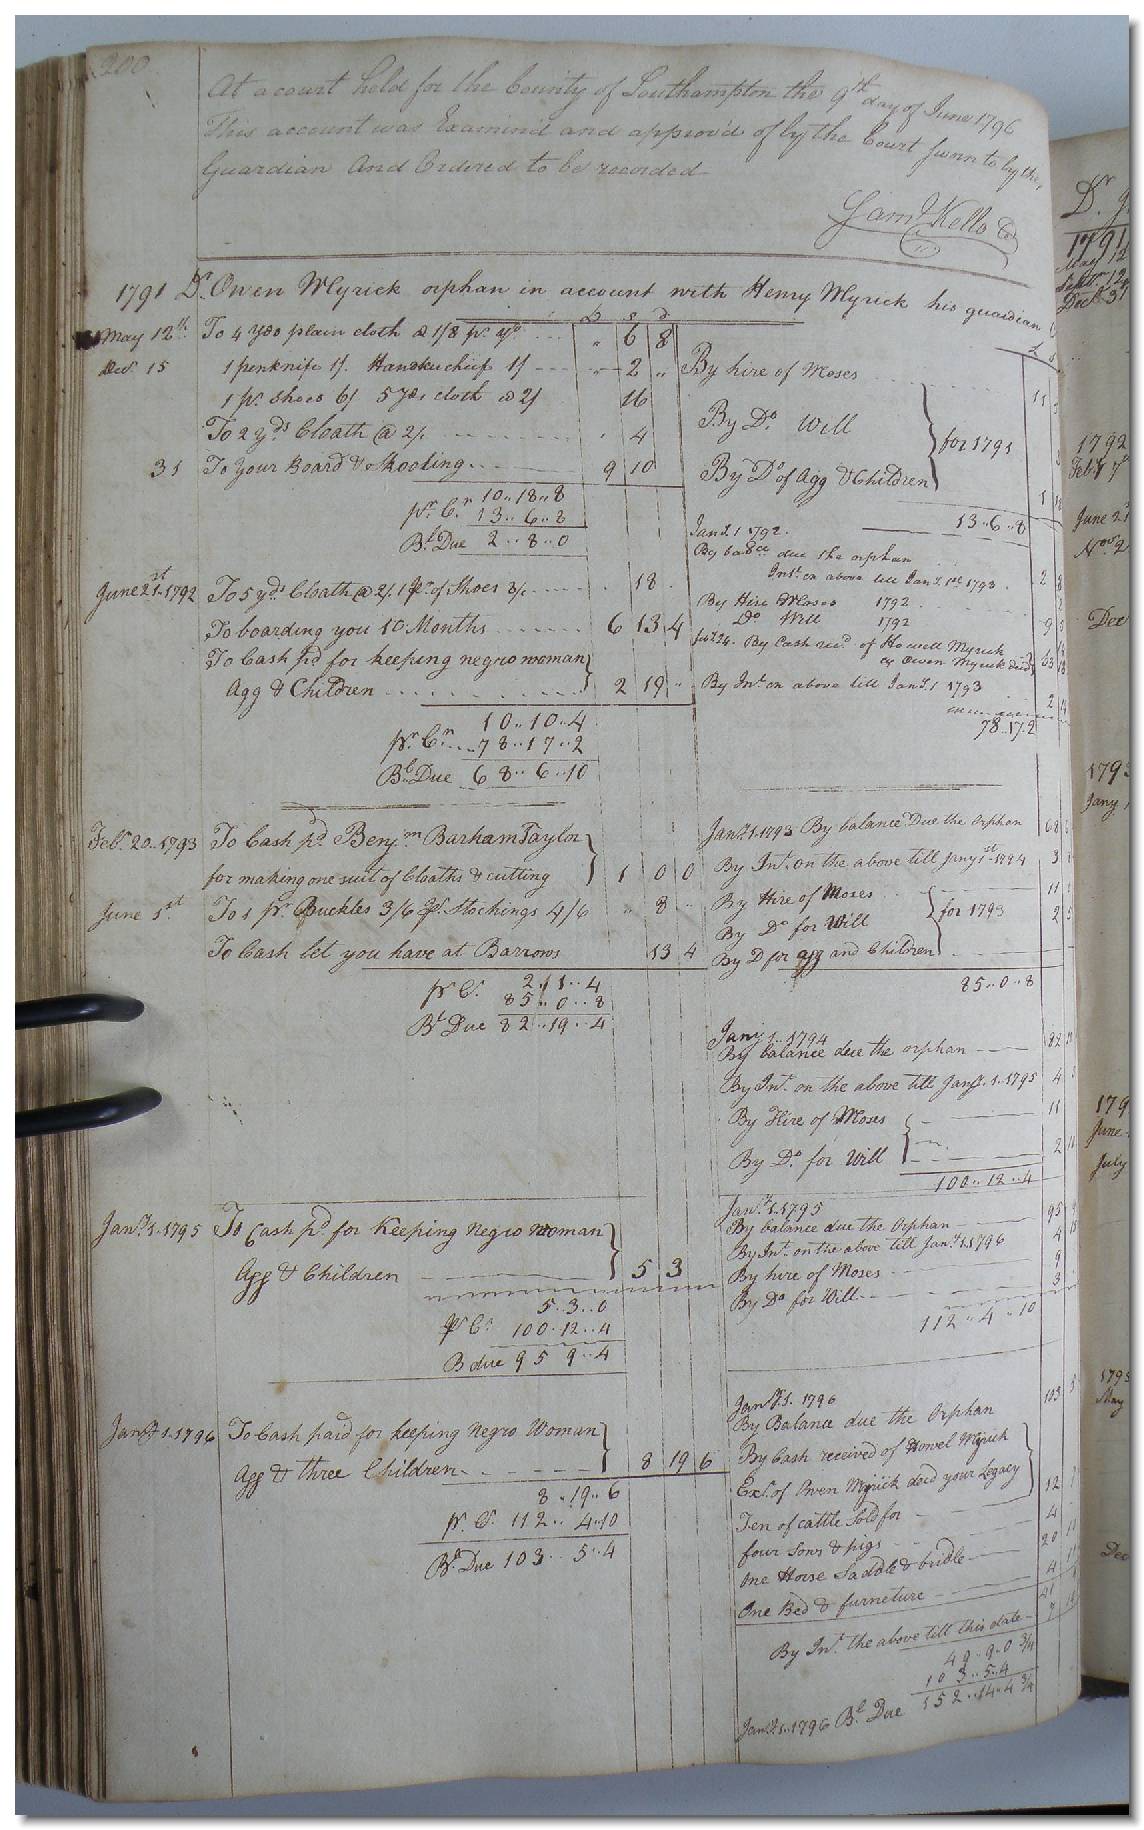 200
At a court held for the County of Southampton the 9th day of June 1796
This account was Examined and approv'd of by the Court sworn to by the
Guardian And Ordered to be recorded
Saml Kello
1791 Dr. Owen Myrick orphan in account with Henry Myrick his guardian
£ s d
May 12th To 4 yds plain cloth @ 1/8 pr yd ... " 6 8
Decr 15 1 penknife 1/. Handkuchief 1/ --- " 2 "
1 pr shoes 6/ 5 yds cloth @ 2/ 16
To 2 yds Cloath @ 2/. 4
31 To your Board & Skooling 9 10
10..18..8
pr Cr 13..6..8
Bl Due 2..8..0
June 21st 1792 To 5 yds Cloath @ 2/. 1 pr of Shoes 8/. 18
To boarding you 10 Months 6 13 4
To Cash pd for keeping negro woman
Agg & Children 2 19 "
10..10..4
pr Cr 78..17..2
Bl Due 68..6..10
Feb. 20. 1793 To Cash pd Benjm Barham Taylor
for making one suit of Cloaths & cutting 1 0 0
June 1st To 1 pr Buckles 3/6 pr Stockings 4/6 " 8
To Cash let you have at Barrows 13 4
2..1..4
pr C. 85..0..8
Bl Due 82..19..4
Jany 1. 1795 To Cash pd for Keeping negro woman
Agg & Children 5 3
5..3..0
pr Cr 100..12..4
B due 95 9..4
Jany 1. 1796 To Cash paid for keeping negro Woman
Agg & three Children 8 19 6
8..19..6
pr. C. 112..4..10
Bl Due 103..5..4
£ s
By hire of Moses 11
By Do Will
for 1791
By Do of Agg & Children 1
13..6..8
Jany 1 1792.
By balce due the orphan
Int. on above till Jany 1st 1793 2
By Hire Moses 1792
Do Will 1792 9
24. By Cash recd of Howell Myrick
Owen Myrick decd 63
By Int on above till Jany 1 1793 2
78..17..2
Jany 1. 1793 By balance Due the orphan 68
By Int. on the above till Jany 1st 1794 3
By Hire of Moses 11
By Do for Will 2
for 1793
By D for agg and Children
85..0..8
Jany 1. 1794
By balance due the orphan 82
By Int. on the above till Jany. 1. 1795 4
By Hire of Moses 11
By Do for Will 2
100..12..4
Jany 1. 1795
By balance due the Orphan 95 9
By Int. on the above till Jany 1. 1796 4
By hire of Moses 9
By Do for Will 3
112..4..10
Jany 1. 1796
By Balance due the Orphan 103 5
By Cash received of Howel Myrick
Exr. of Owen Myrick decd your Legacy 12
Ten of cattle Sold for 4
four Sows & pigs 20
One Horse Saddle & bridle 4
One Bed & furneture 41
By Int. the above till this date 7
49..9..0 3/4
103..5..4
152..14..4 3/4
Jany 1. 1796 Bl Due
Dr
1791
Sept 12
Decr 31
1792
Feby
June 21
Novr 2
Dec
1793
Jany 1
179
June
July
1795
May
Dec